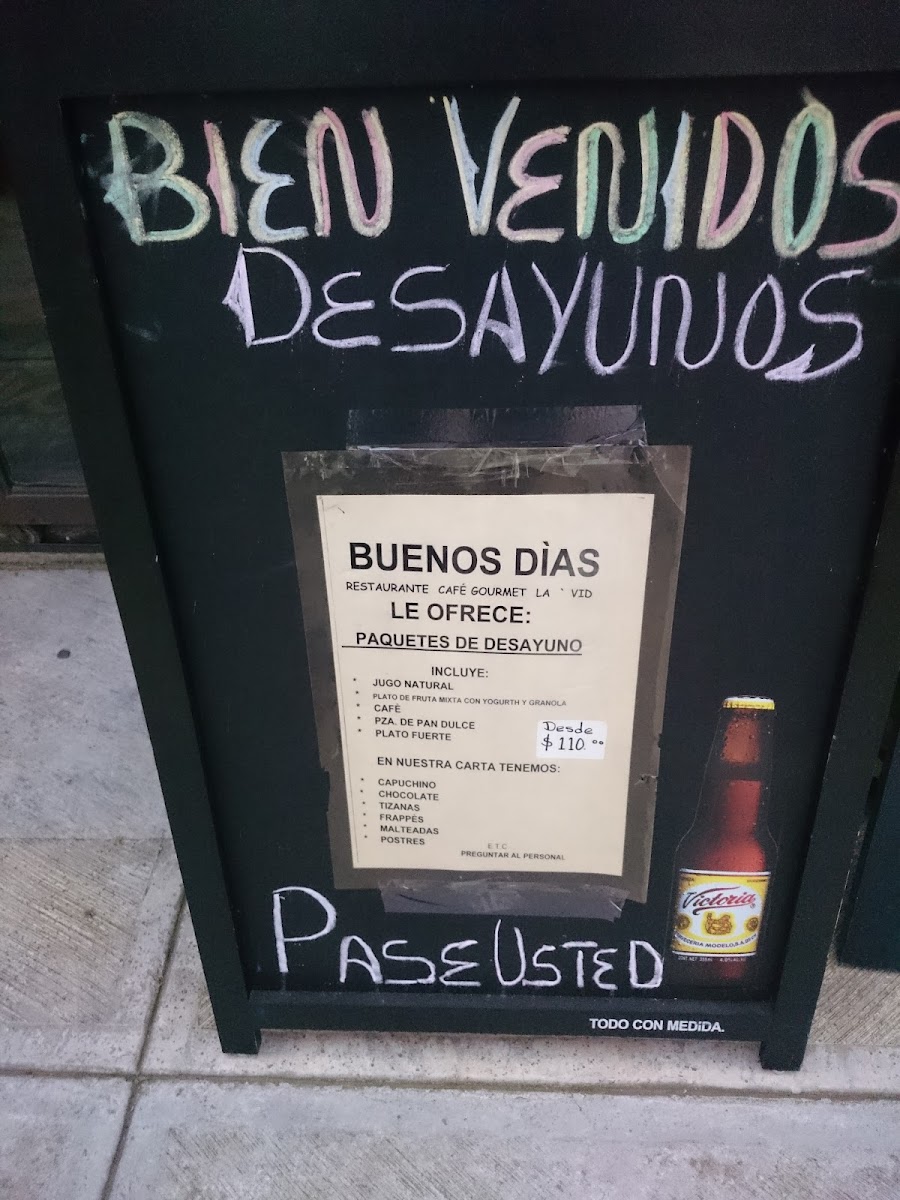 BIEN VENIDOS
DESAYUNOS
BUENOS DÌAS
RESTAURANTE CAFÉ GOURMET LA ` VID
LE OFRECE:
PAQUETES DE DESAYUNO
INCLUYE:
* JUGO NATURAL
* PLATO DE FRUTA MIXTA CON YOGURTH Y GRANOLA
* CAFÈ
* PZA. DE PAN DULCE
* PLATO FUERTE
Desde
$ 110.00
EN NUESTRA CARTA TENEMOS:
* CAPUCHINO
* CHOCOLATE
* TIZANAS
* FRAPPÈS
* MALTEADAS
* POSTRES
E.T.C
PREGUNTAR AL PERSONAL
Victoria
CERVECERIA MODELO, S.A. DE C.V.
PASE USTED
TODO CON MEDIDA.